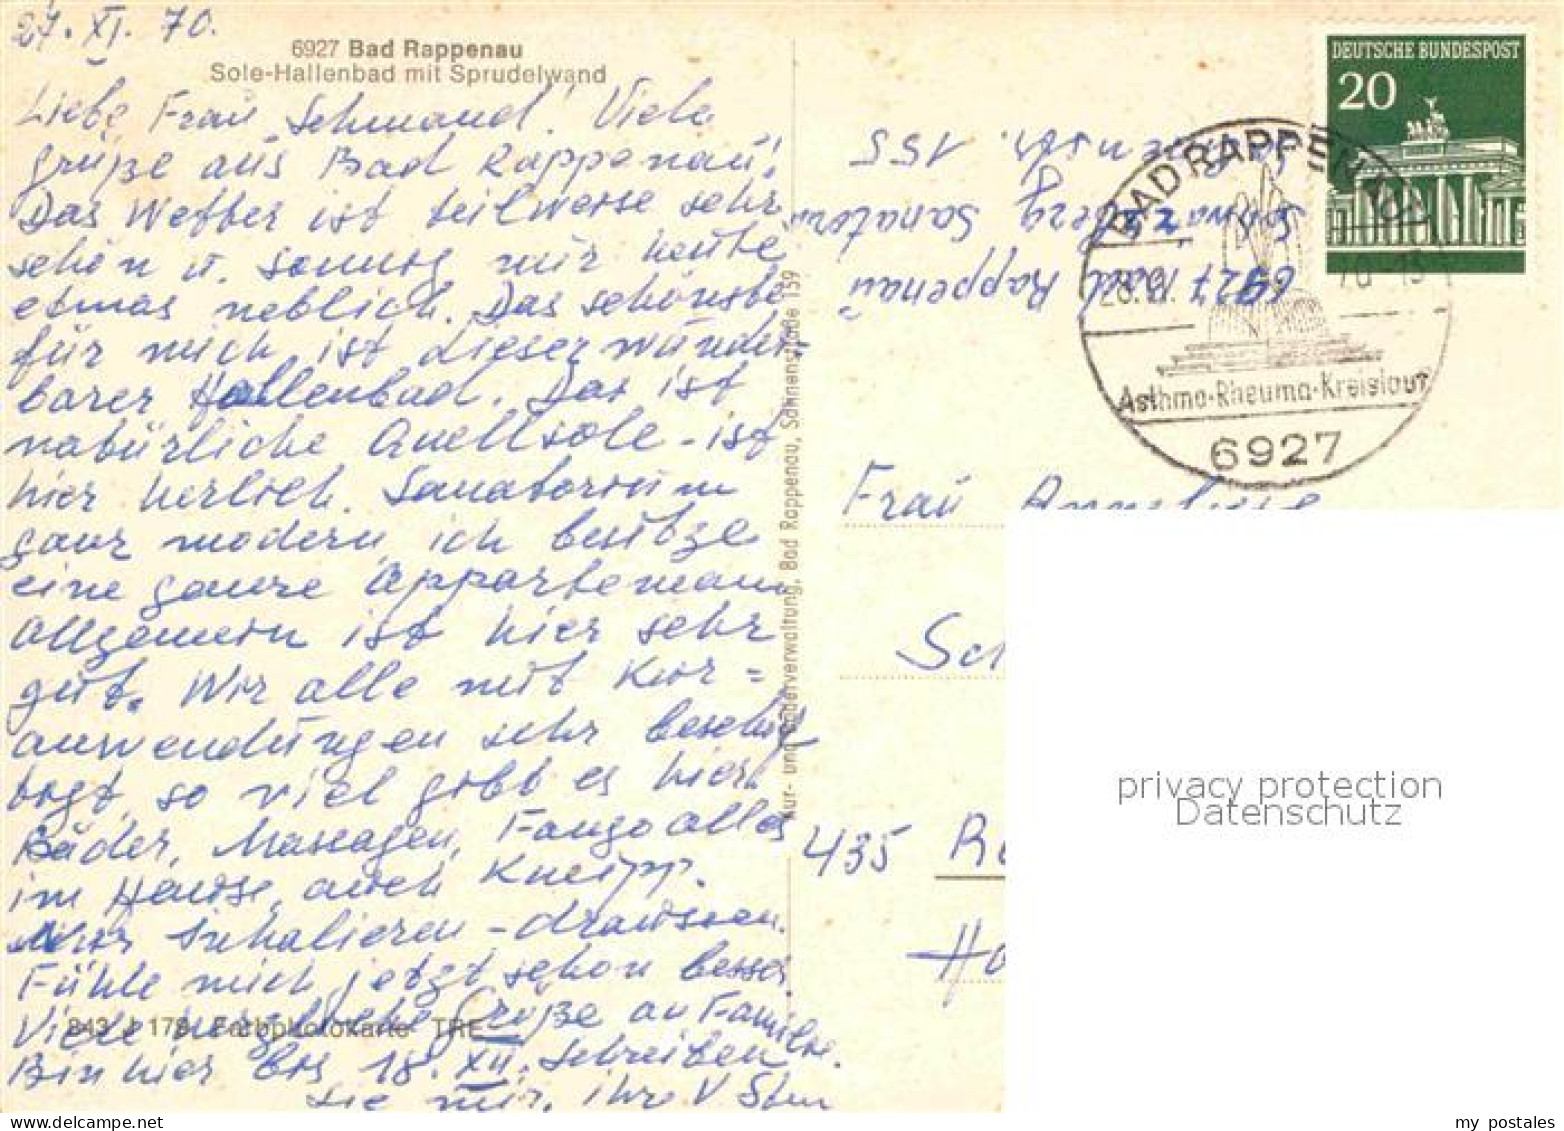 27. XI. 70.
6927 Bad Rappenau
Sole-Hallenbad mit Sprudelwand
Liebe Frau Schmand! Viele
grüße aus Bad Rappenau!
Das Wetter ist teilweise sehr
schön u. sonnig nur heute
etwas neblich. Das schönste
für mich ist dieser wunder-
barer Hallenbad. Das ist
natürliche Quellsole - ist
hier herlich. Sanatorium
ganz modern, ich besitze
eine ganze Appartemann
allgemein ist hier sehr
gut. Wir alle mit Kur=
anwendungen sehr beschäf
tigt, so viel gibt es hier.
Bäder, Massagen, Fango alles
im Hause, auch Kneipp.
Nur Inhalieren - draussen.
Fühle mich jetzt schon besser.
Viele herzliche Grüße an Familie.
Bin hier bis 18. XII. Schreiben
sie mir, ihre V
843 178 Farbphotokarte TRE
Kur- und Bäderverwaltung, Bad Rappenau, Salinenstraße 159
155
Schwarzberg Sanatorium
6927 Bad Rappenau
DEUTSCHE BUNDESPOST
20
BAD RAPPENAU
70-15
Asthma-Rheuma-Kreislauf
6927
Frau Anneliese
Sch
435 Re
Ha
privacy protection
Datenschutz
my postales